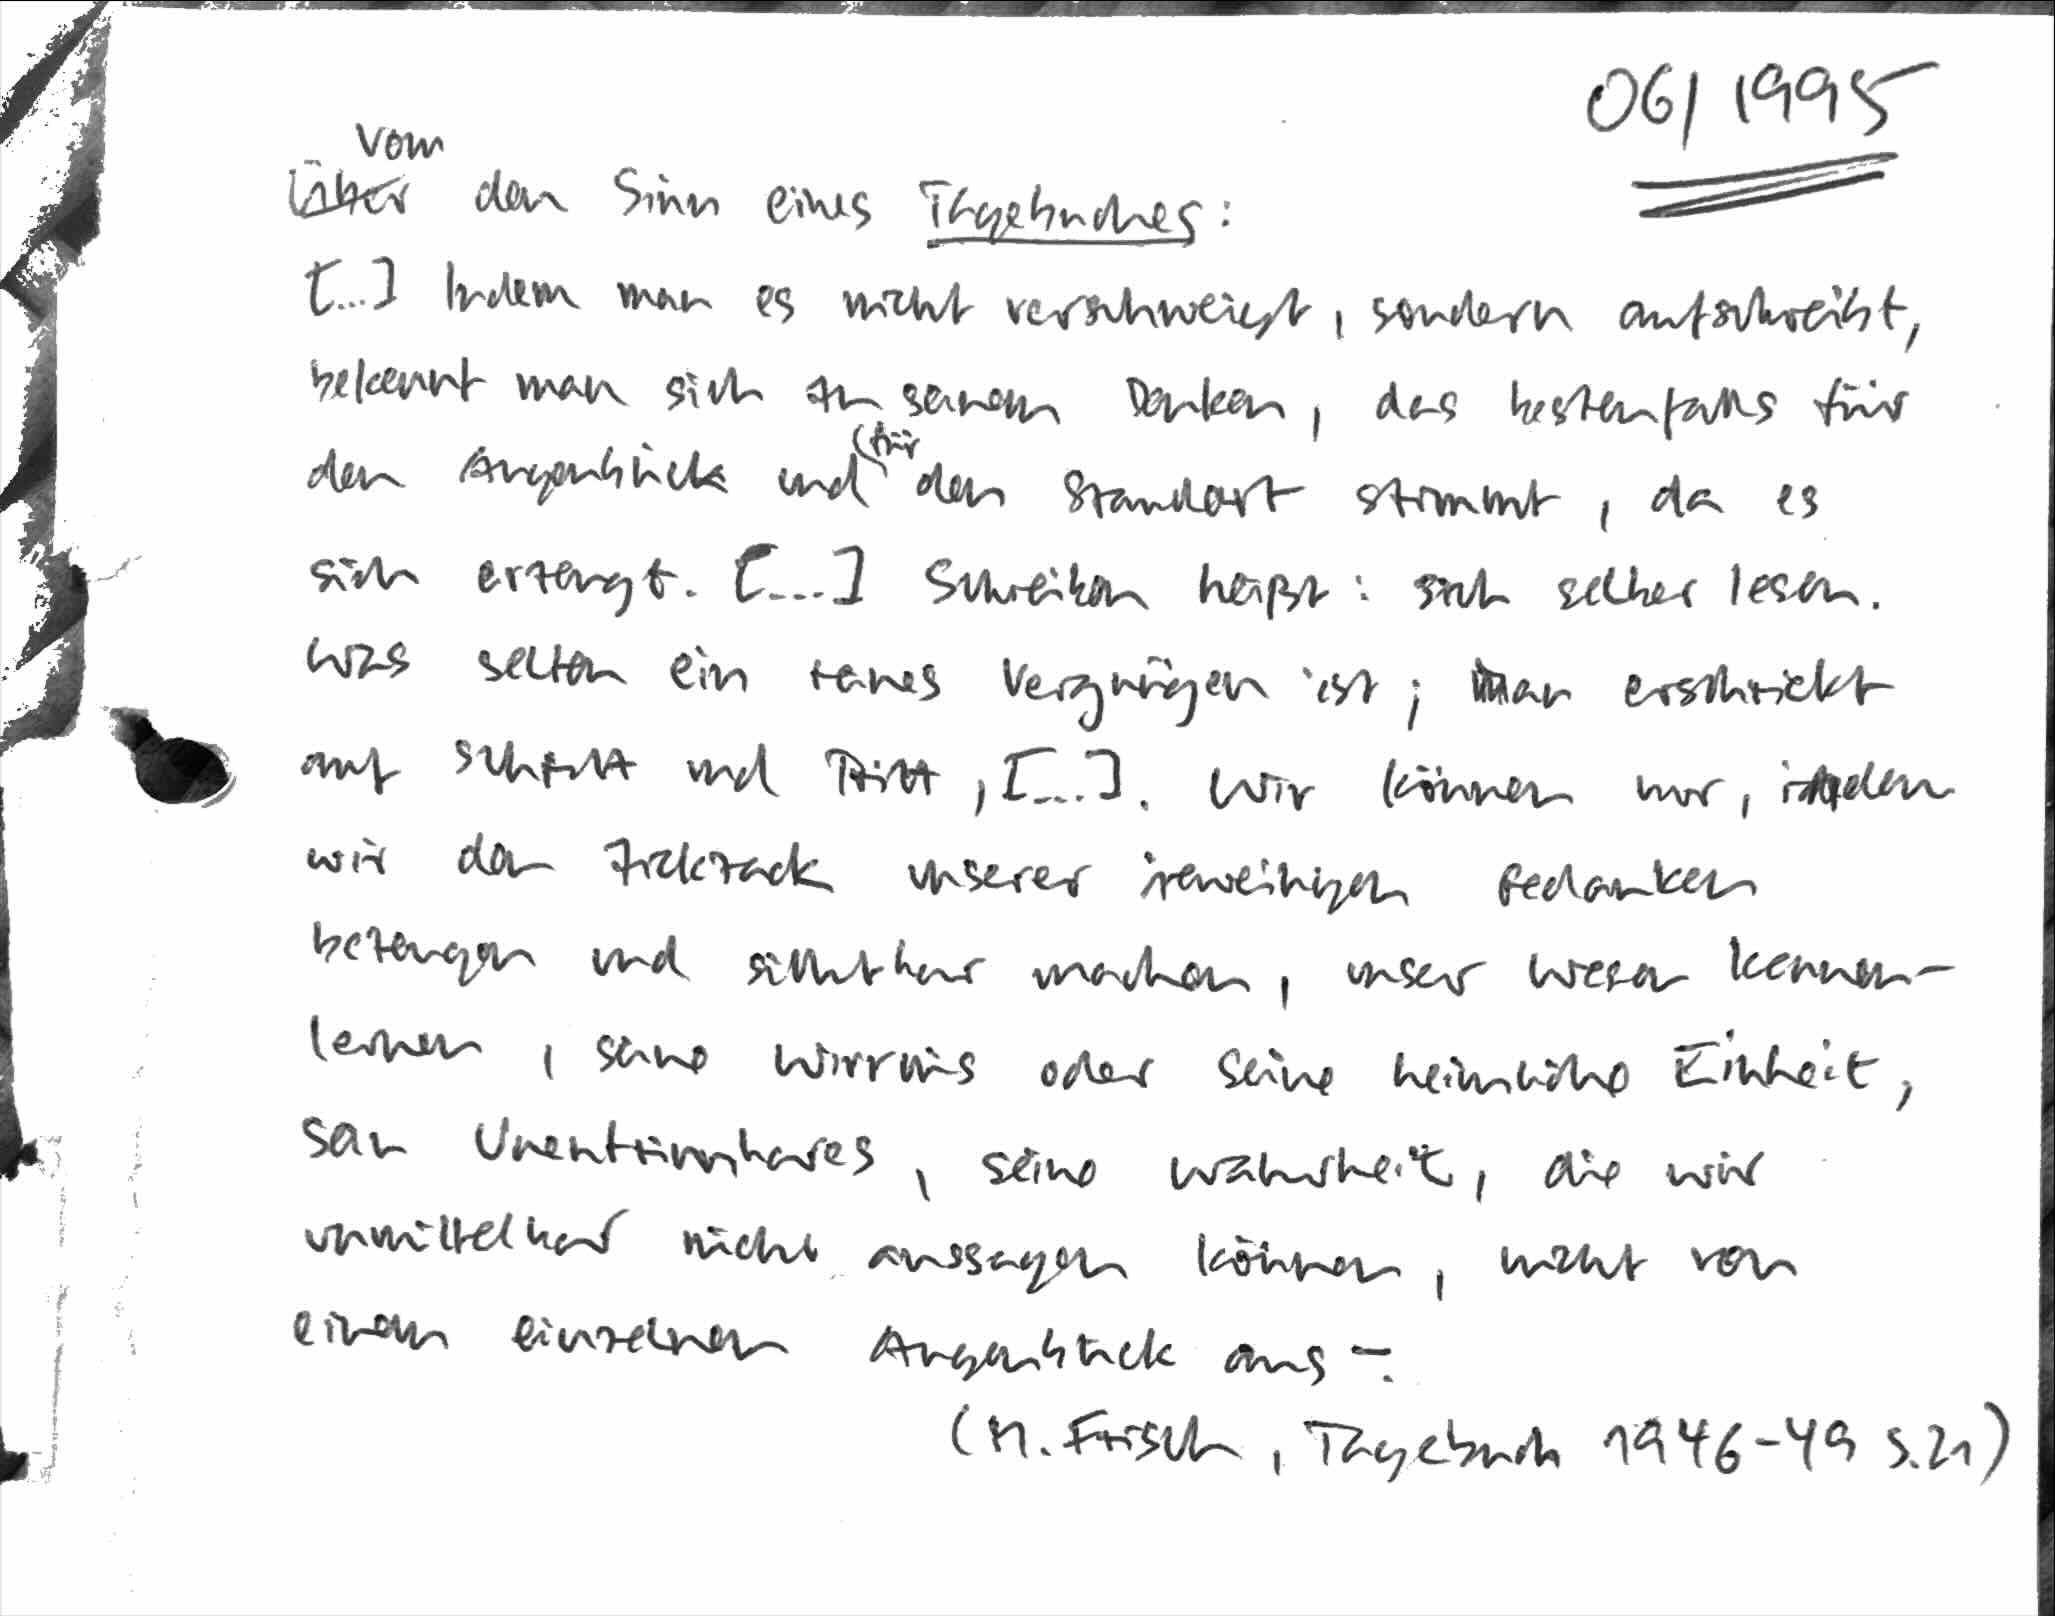 06/1995
vom
Über den Sinn eines Tagebuches:
[...] Indem man es nicht verschweigt, sondern aufschreibt,
bekennt man sich zu seinem Denken, das bestenfalls für
den Augenblick und (für den Standort stimmt, da es
sich erzeugt. [....] Schreiben heißt: sich selber lesen.
Was selten ein reines Vergnügen ist; man erschrickt
auf Schritt und Tritt, [...]. Wir können nur, indem
wir den Zickzack unserer jeweiligen Gedanken
bezeugen und sichtbar machen, unser Wesen kennen-
lernen, seine Wirrnis oder seine heimliche Einheit,
sein Unentrinnbares, seine Wahrheit, die wir
unmittelbar nicht aussagen können, nicht von
einem einzelnen Augenblick aus -.
(M. Frisch, Tagebuch 1946-49 S.21)